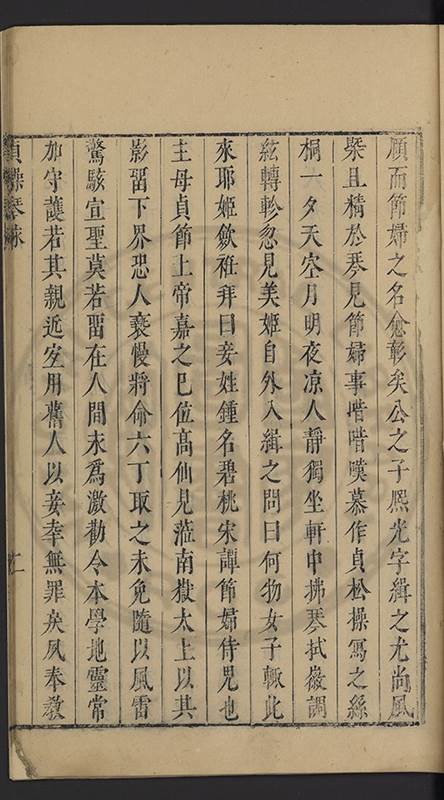 顏而節婦之名愈彰矣公之子熈光字緝之尤尚風
槩且精於琴見節婦事嘖嘖嘆慕作貞松操寫之絲
桐一夕天空月明夜凉人靜獨坐軒中拂琴拭徽調
絃轉軫忽見美姬自外入緝之問曰何物女子輙此
來耶姬歛袵拜曰妾姓鍾名碧桃宋譚節婦侍兒也
主母貞節上帝嘉之已位髙仙見蒞南嶽太上以其
影畱下界恐人褻慢將命六丁取之未免隨以風雷
驚駭宣聖莫若畱在人間永爲激勸令本學地靈常
加守護若其親近宜用舊人以妾幸無罪戾夙奉敎
貞操琴咏